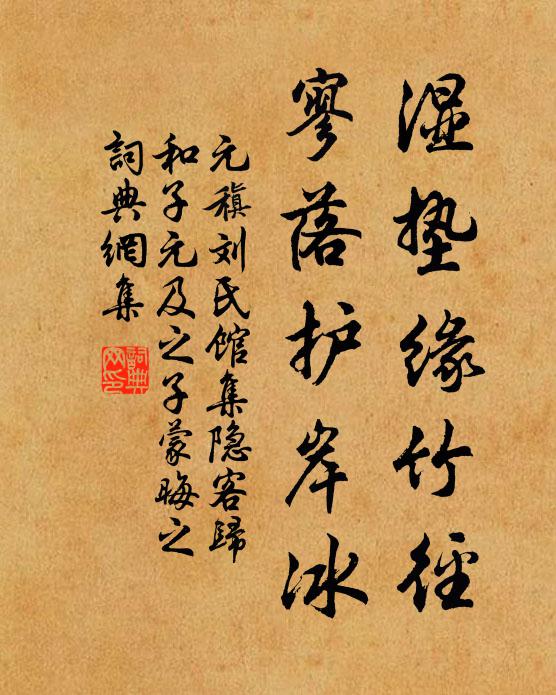 湿垫缘竹径
寥落护岸冰
元稹刘氏馆集隐客歸
和子元及之子蒙晦之
詞典網集
詞典
网印